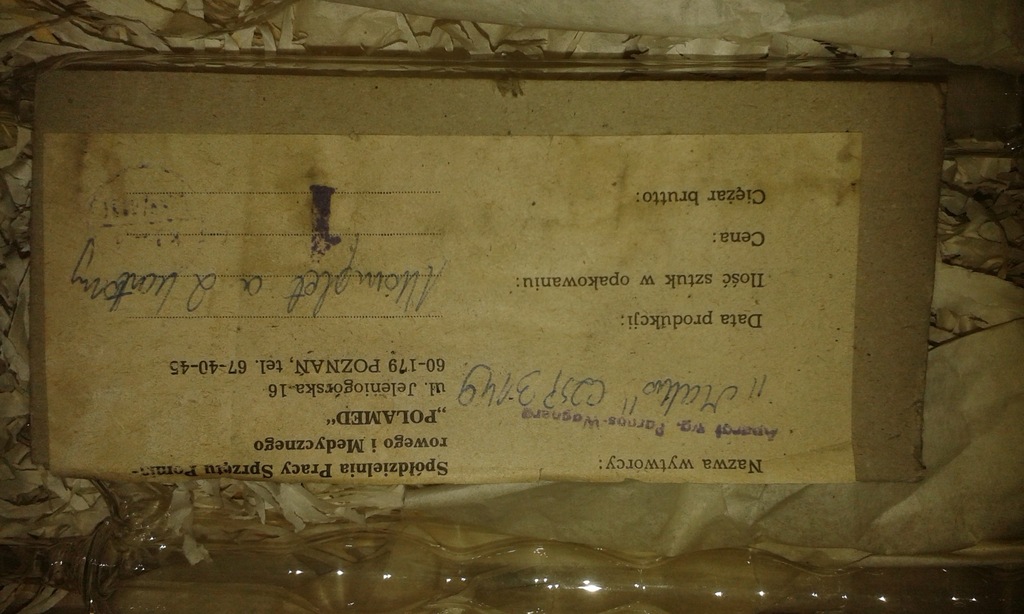 Nazwa wytworcy:
Spółdzielnia Pracy Sprzętu Pomia-
rowego i Medycznego
„POLAMED“
ul. Jeleniogórska 16
60-179 POZNAŃ, tel. 67-40-45
Aparat wg. Parnas-Wagnera
Data produkcji:
Ilość sztuk w opakowaniu:
1 komplet a 2 kartony
Cena:
Ciężar brutto: